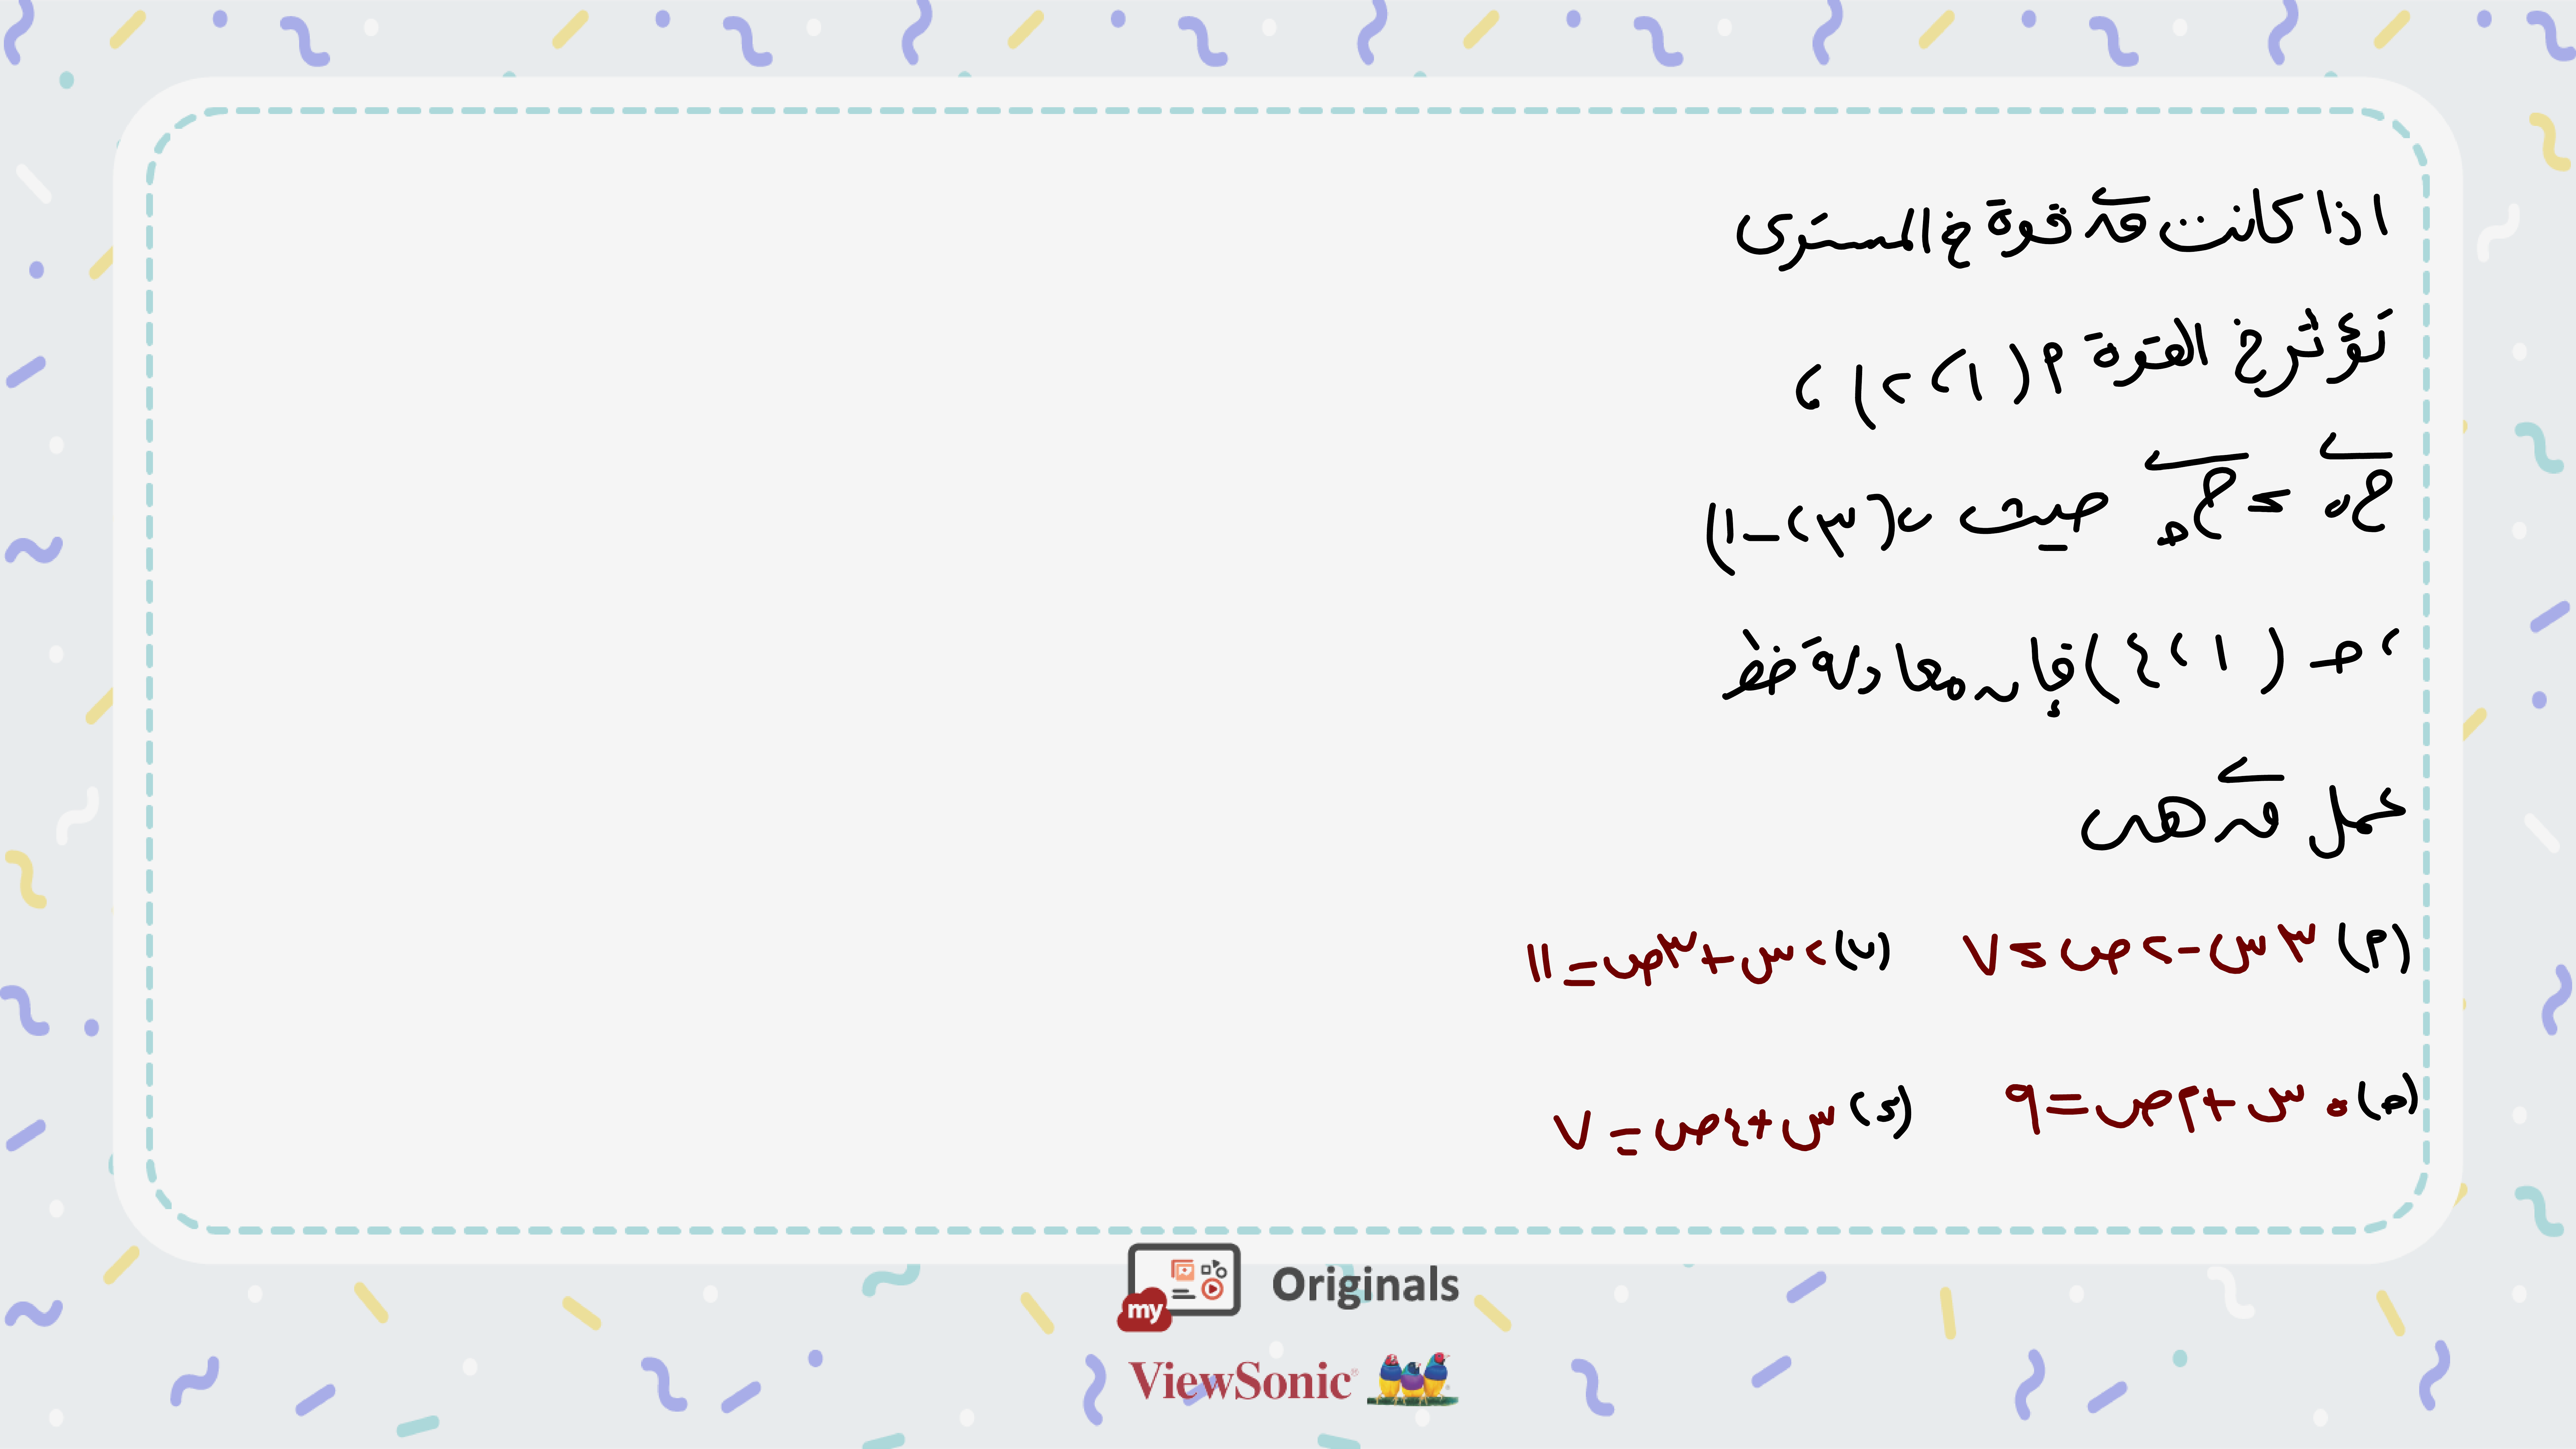 اذا كانت ق قوة في المستوى
تؤثر في القوة م (١، ٢) ،
ج ب = ج ح حيث ب (٣، -١)
، ح (١، ٤) فإن معادلة خط
عمل ق هى
(م) ٣س - ٢ص = ٧ (ب) ٢س + ٣ص = ١١
(ح) ٥س + ٢ص = ٩ (د) س + ٤ص = ٧
my Originals
ViewSonic